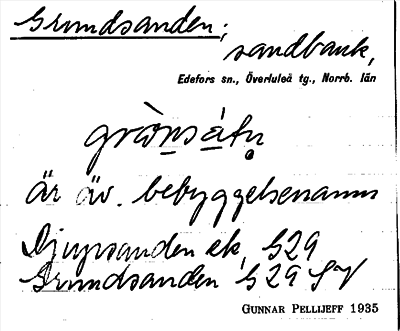 Grundsanden;
sandbank,
Edefors sn., Överluleå tg., Norrb. län
är äv. bebyggelsenamn
Djupsanden ek. S29
Grundsanden S29 SV
GUNNAR PELLIJEFF 1935